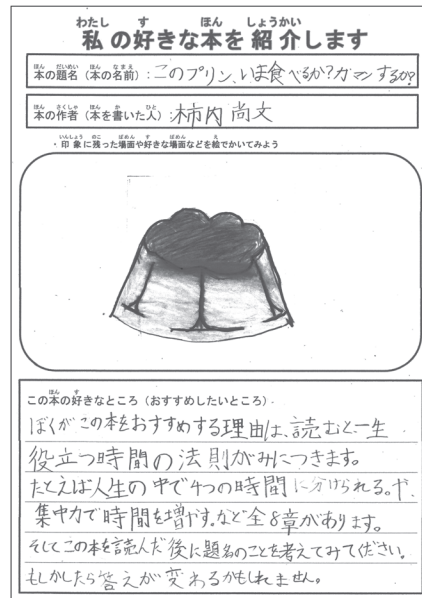 私の好きな本を紹介します
本の題名（本の名前）：このプリン、いま食べるか？ガマンするか？
本の作者（本を書いた人）：柿内尚文
・印象に残った場面や好きな場面などを絵でかいてみよう
この本の好きなところ（おすすめしたいところ）
ぼくがこの本をおすすめする理由は、読むと一生
役立つ時間の法則がみにつきます。
たとえば人生の中で4つの時間に分けられる。や、
集中力で時間を増やす。など全8章があります。
そしてこの本を読んだ後に題名のことを考えてみてください。
もしかしたら答えが変わるかもしれません。